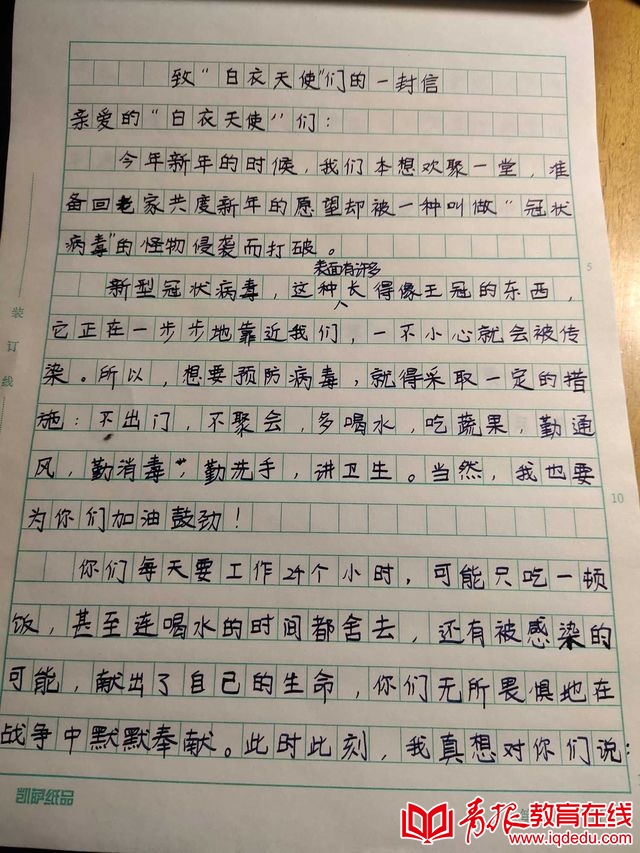 致“白衣天使”们的一封信
亲爱的“白衣天使”们：
今年新年的时候，我们本想欢聚一堂，准
备回老家共度新年的愿望却被一种叫做“冠状
病毒”的怪物侵袭而打破。
表面有许多
新型冠状病毒，这种长得像王冠的东西，
它正在一步步地靠近我们，一不小心就会被传
染。所以，想要预防病毒，就得采取一定的措
施：不出门，不聚会，多喝水，吃蔬果，勤通
风，勤消毒，勤洗手，讲卫生。当然，我也要
为你们加油鼓劲！
你们每天要工作24个小时，可能只吃一顿
饭，甚至连喝水的时间都舍去，还有被感染的
可能，献出了自己的生命，你们无所畏惧地在
战争中默默奉献。此时此刻，我真想对你们说：
装
订
线
5
10
凯萨纸品
青报教育在线
www.iqdedu.com